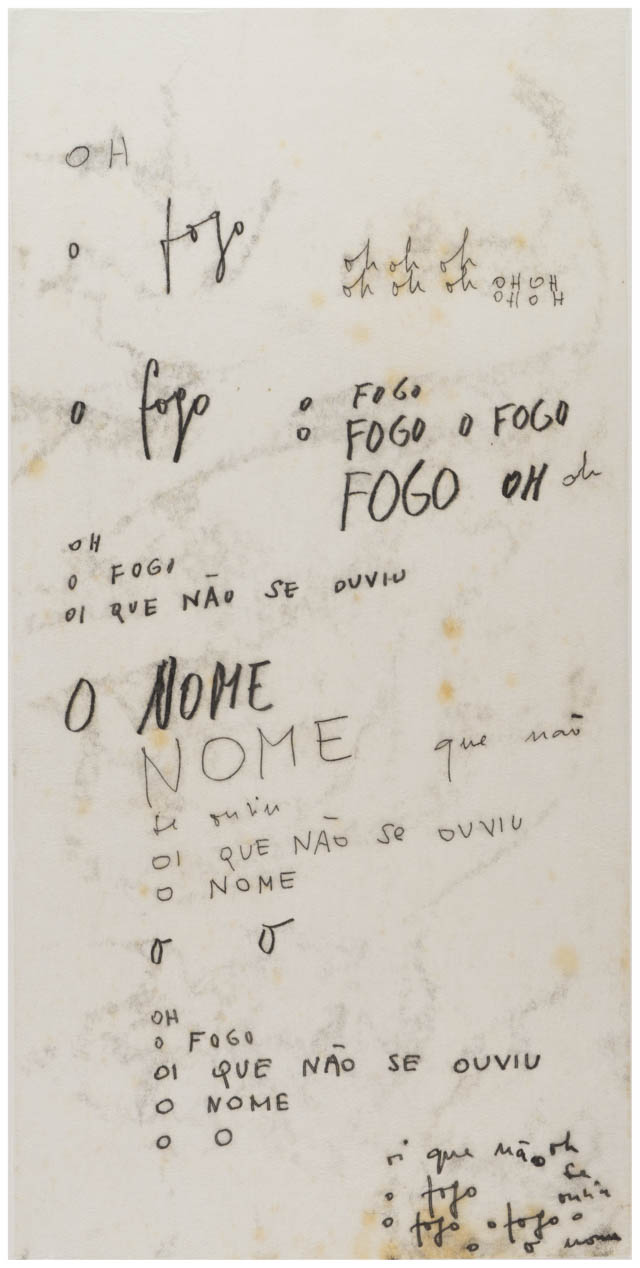 OH
o fogo
oh oh oh
oh oh oh OH OH
OH OH
o fogo
o FOGO
o FOGO O FOGO
FOGO OH oh
OH
O FOGO
OI QUE NÃO SE OUVIU
O NOME
NOME que não
se ouviu
OI QUE NÃO SE OUVIU
O NOME
o o
OH
O FOGO
OI QUE NÃO SE OUVIU
O NOME
O O
oi que não oh
se
o fogo ouviu
o fogo o fogo o
o o nome